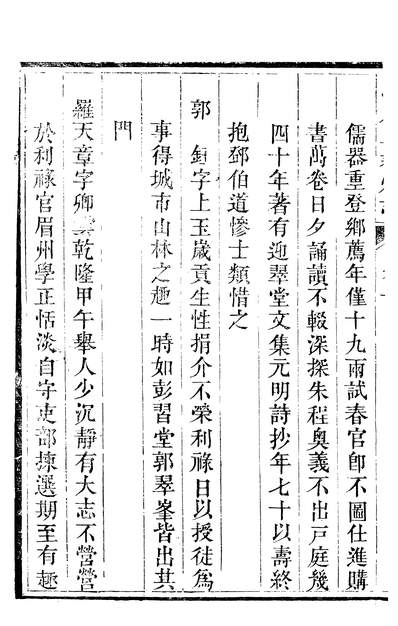 儒器重登鄉薦年僅十九兩試春官卽不圖仕進購
書萬卷日夕誦讀不輟深探朱程奧義不出戸庭幾
四十年著有迎翠堂文集元明詩抄年七十以壽終
抱鄧伯道慘士類惜之
郭 鍾字上玉歲貢生性捐介不榮利祿日以授徒爲
事得城市山林之趣一時如彭習堂郭翠峯皆出其
門
羅天章字卿雲乾隆甲午舉人少沉靜有大志不營營
於利祿官眉州學正恬淡自守吏部揀選期至有趣